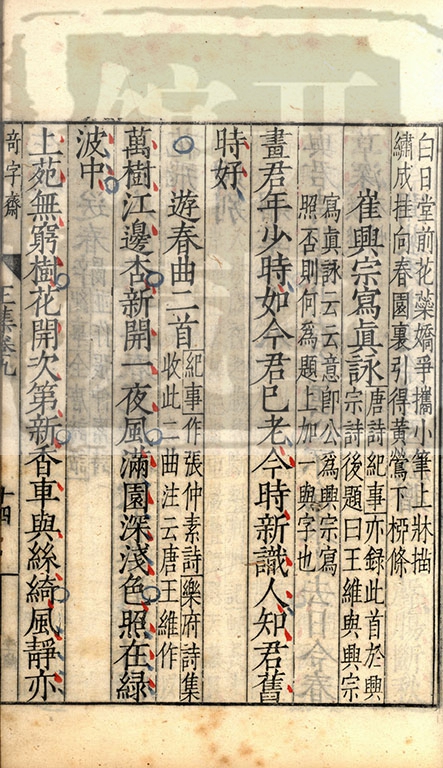 白日堂前花蘂嬌爭攜小筆上牀描
繡成挂向春園裏引得黃鶯下柳條
崔興宗寫眞詠唐詩紀事亦錄此首於興
宗詩後題曰王維與興宗
寫眞詠云云意卽公爲興宗寫
照否則何爲題上加一與字也
畫君年少時如今君已老今時新識人知君舊
時好
遊春曲二首紀事作張仲素詩樂府詩集
收此二曲注云唐王維作
萬樹江邊杏新開一夜風滿園深淺色照在綠
波中
上苑無窮樹花開次第新香車與絲綺風靜亦
奇字齋
王集卷九
十四